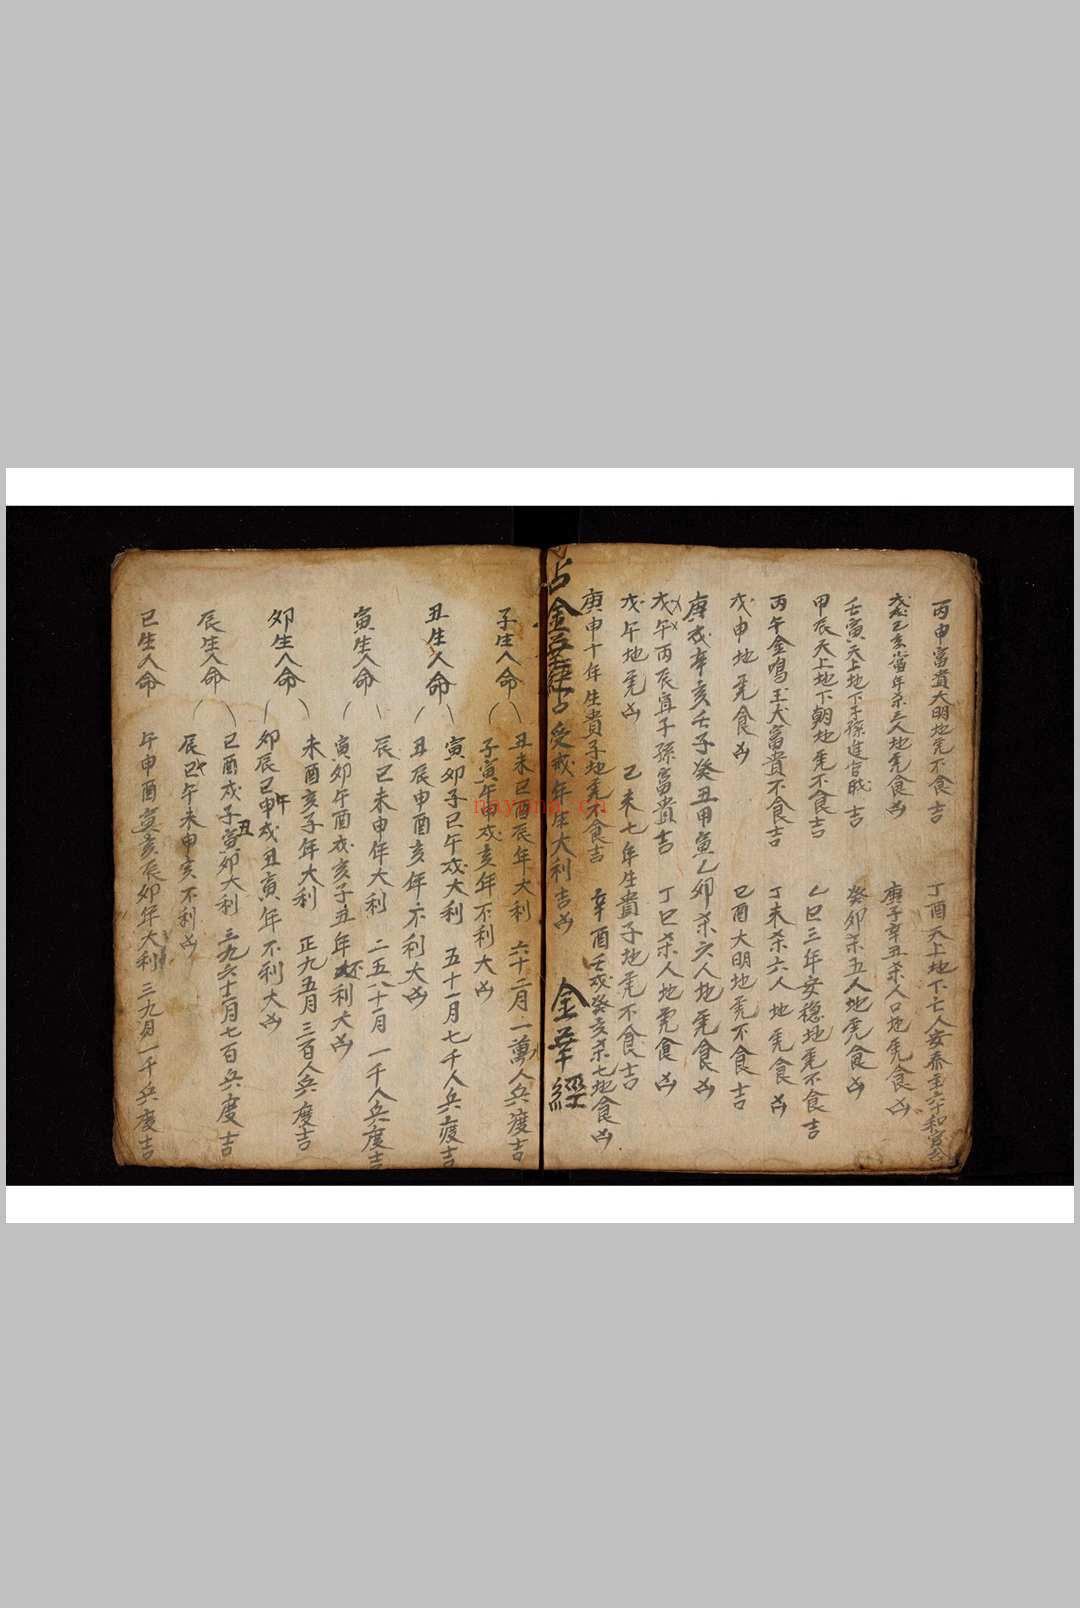 丙申富貴大明地虎不食吉
丁酉天上地下亡人安泰至六十和
戊戌己亥當年杀三人地虎食凶
庚子辛丑杀人口地虎食凶
壬寅天上地下子孫進官戝吉
癸卯杀五人地虎食凶
甲辰天上地下朝地虎不食吉
乙巳三年安穏地虎不食吉
丙午金鳴玉犬富貴不食吉
丁未杀六人地虎食凶
戊申地虎食凶
己酉大明地虎不食吉
庚戌辛亥壬子癸丑甲寅乙卯杀六人地虎食凶
戊午丙辰宜子孫富貴吉
丁巳杀人地虎食凶
戊午地虎凶
己未七年生貴子地虎不食吉
庚申十年生貴子地虎不食吉
辛酉壬戌癸亥杀七地食凶
占金華經占受戒年生大利吉凶
金華經
子生人命
丑未巳酉辰年大利 六十二月一萬人兵度吉
子寅午申戌亥年不利大凶
丑生人命
寅卯子巳午戌大利 五十一月七千人兵度吉
丑辰申酉亥年不利大凶
寅生人命
辰巳未申年大利 二五八十二月一千人兵度吉
寅卯午酉戌亥子丑年不利大凶
卯生人命
未酉亥子年大利 正九五月三百人兵度吉
卯辰巳午申戌丑寅年不利大凶
辰生人命
巳酉戌子丑寅卯大利 三九六十二月七百兵度吉
辰巳午未申亥不利凶
巳生人命
午申酉寅亥辰卯年大利 三九月一千兵度吉
nayona.cn